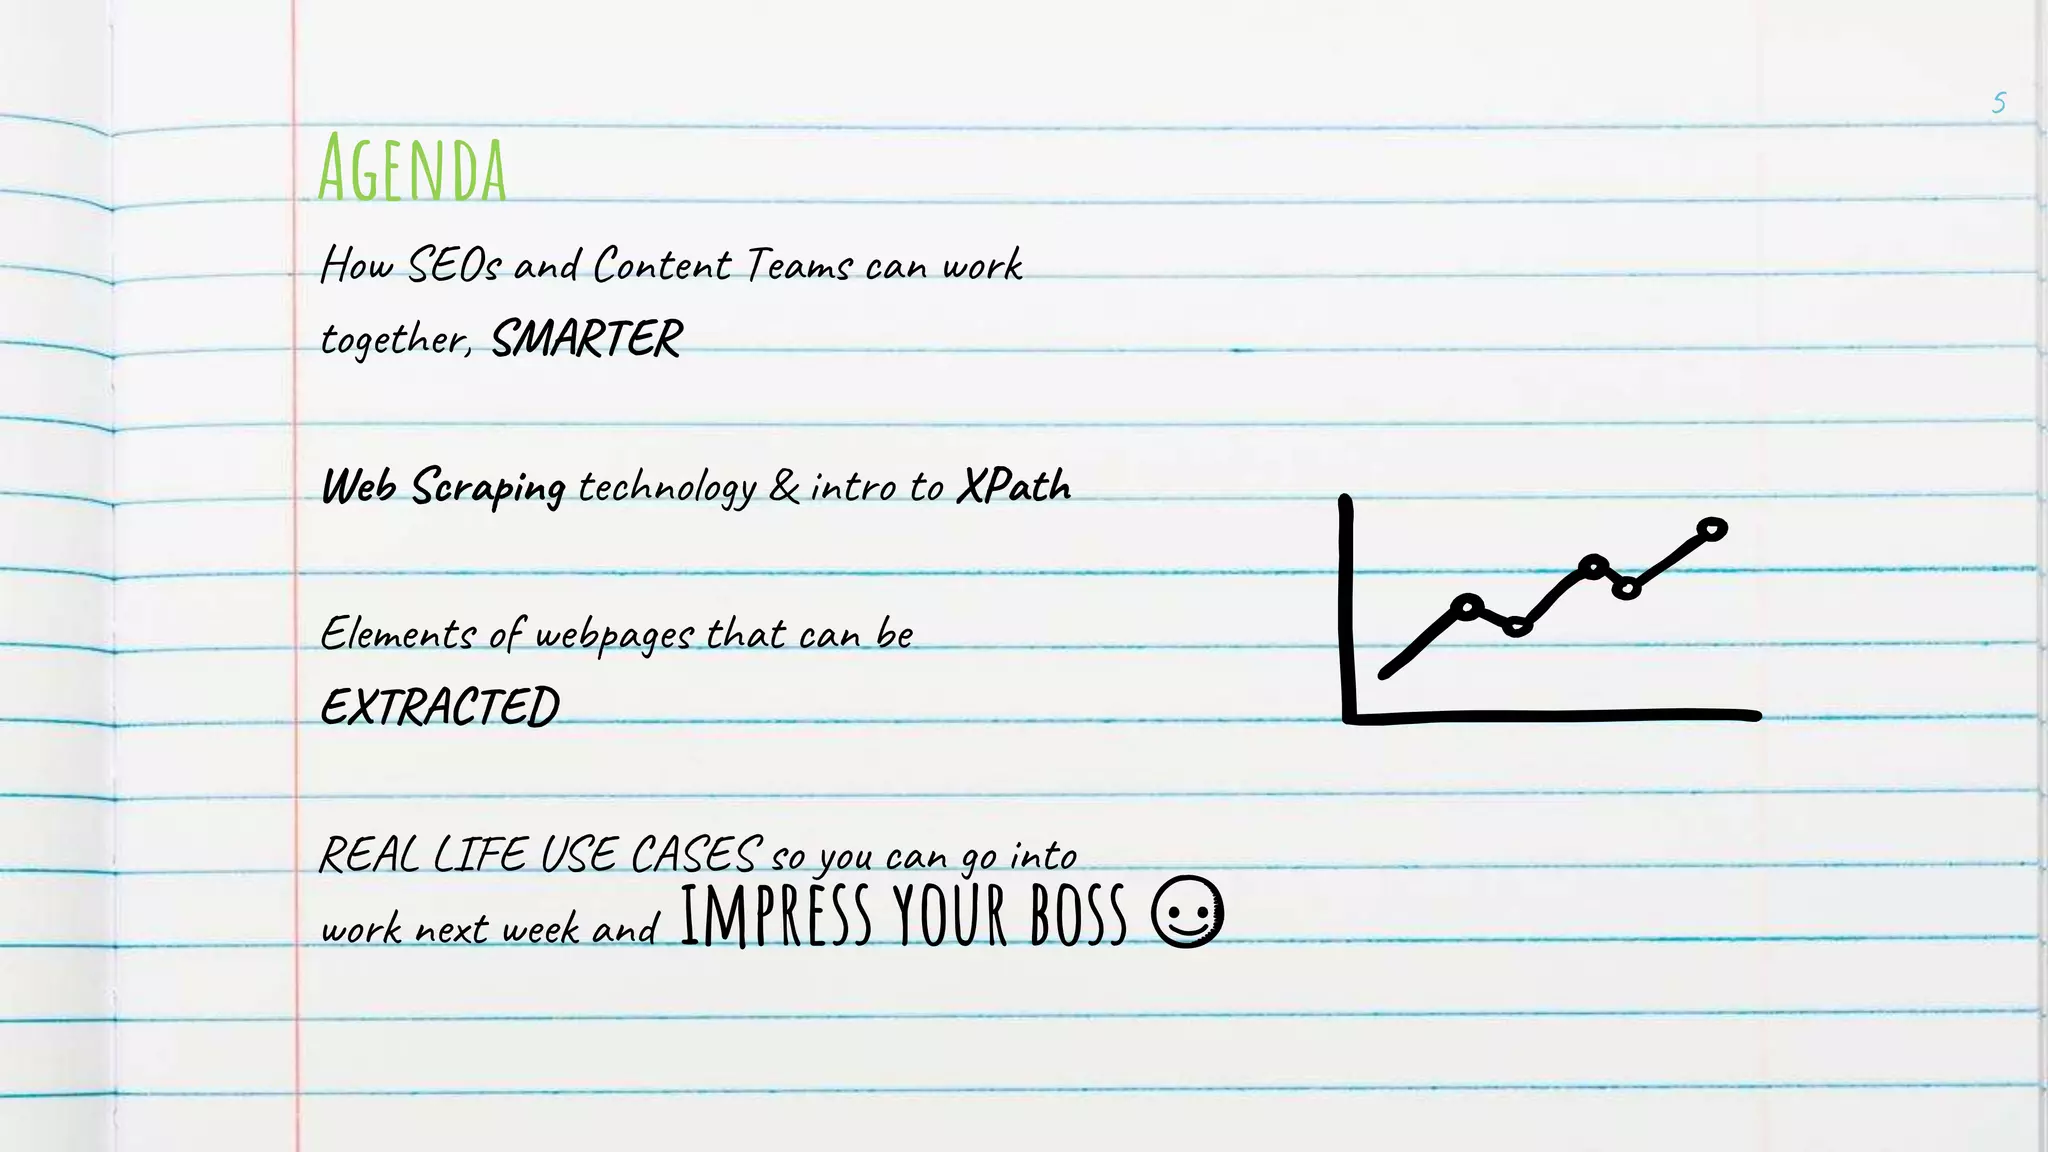 5
Agenda
How SEOs and Content Teams can work
together, SMARTER
Web Scraping technology & intro to XPath
Elements of webpages that can be
EXTRACTED
REAL LIFE USE CASES so you can go into
work next week and IMPRESS YOUR BOSS